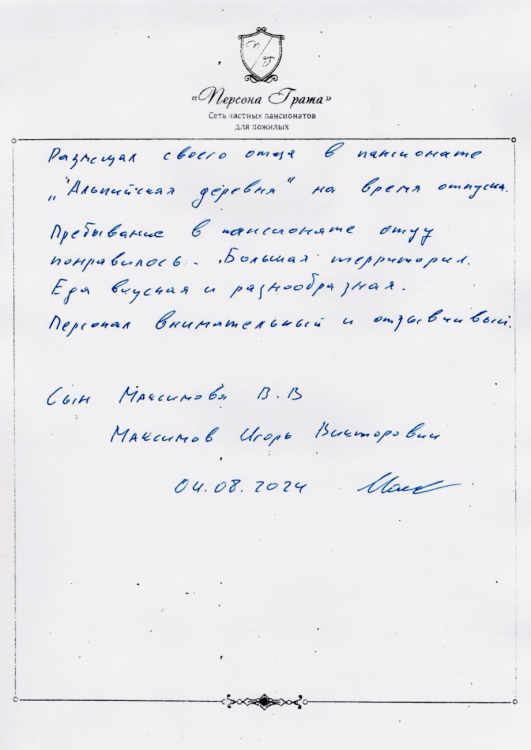 П Г
«Персона Грата»
Сеть частных пансионатов
для пожилых
Размещал своего отца в пансионате
„Альпийская деревня" на время отпуска.
Пребывание в пансионате отцу
понравилось. Большая территория.
Еда вкусная и разнообразная.
Персонал внимательный и отзывчивый.
Сын Максимова В.В
Максимов Игорь Викторович
04.08.2024